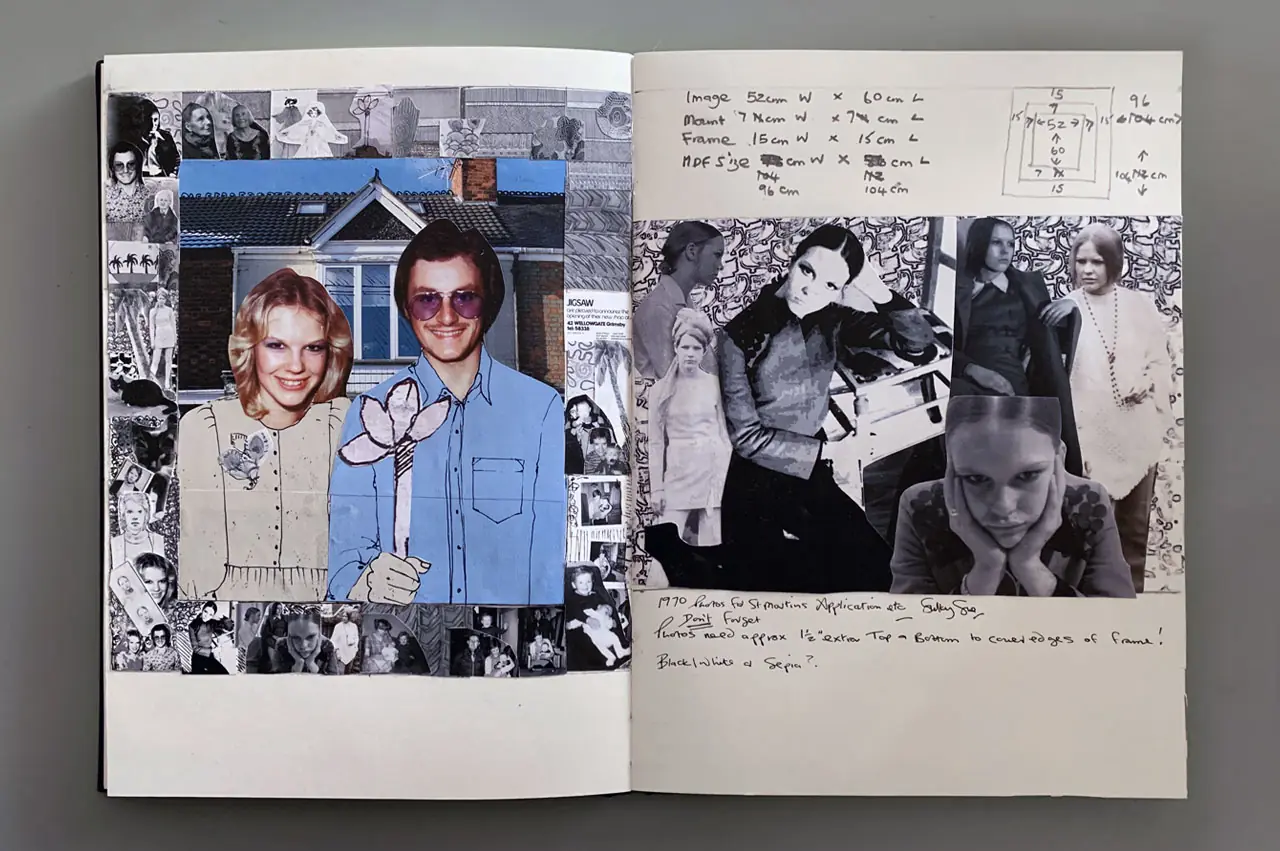 JIGSAW
are pleased to announce the
opening of their new shop at
42 WELLOWGATE Grimsby
tel: 58338
Image 52cm W x 60cm L
Mount 7cm W x 7cm L
Frame 15cm W x 15cm L
MDF Size cm W x cm L
104 112
96cm 104cm
15
7
15 7 ←52→ 7 15
↑
60
↓
7
15
96
104 cm
↑
104 cm
↓
1970 Photos for St Martins Application etc
Don't Forget
Photos need approx 1½" extra Top & Bottom to cover edges of frame!
Black/White or Sepia?